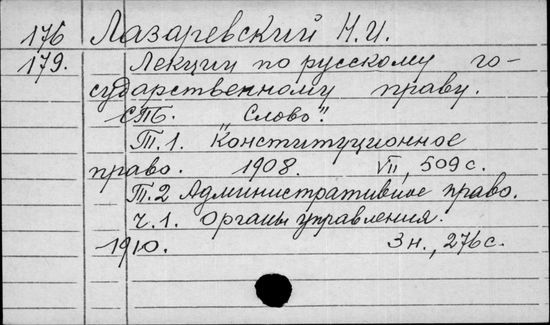 176 Лазаревский Н.И.
179. Лекции по русскому го-
сударственному праву.
СПБ. "Слово".
Т.1. Конституционное
право. 1908. VII, 509 с.
Т.2 Административное право.
Ч.1. Органы управления.
1910. 3 н., 276 с.